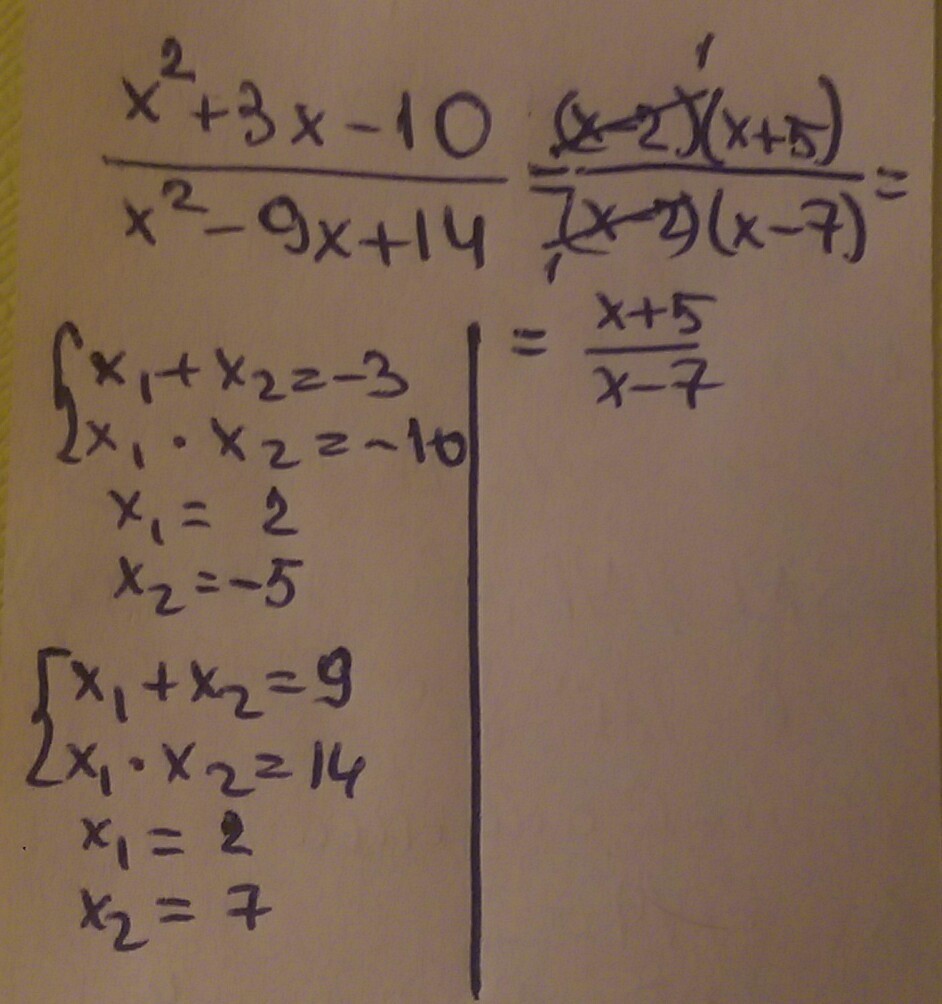 x²+3x-10 / x²-9x+14 = (x-2)¹(x+5) / ₁(x-2)(x-7) =
= x+5 / x-7
{x₁+x₂=-3
x₁·x₂=-10
x₁= 2
x₂=-5
{x₁+x₂=9
x₁·x₂=14
x₁=2
x₂=7